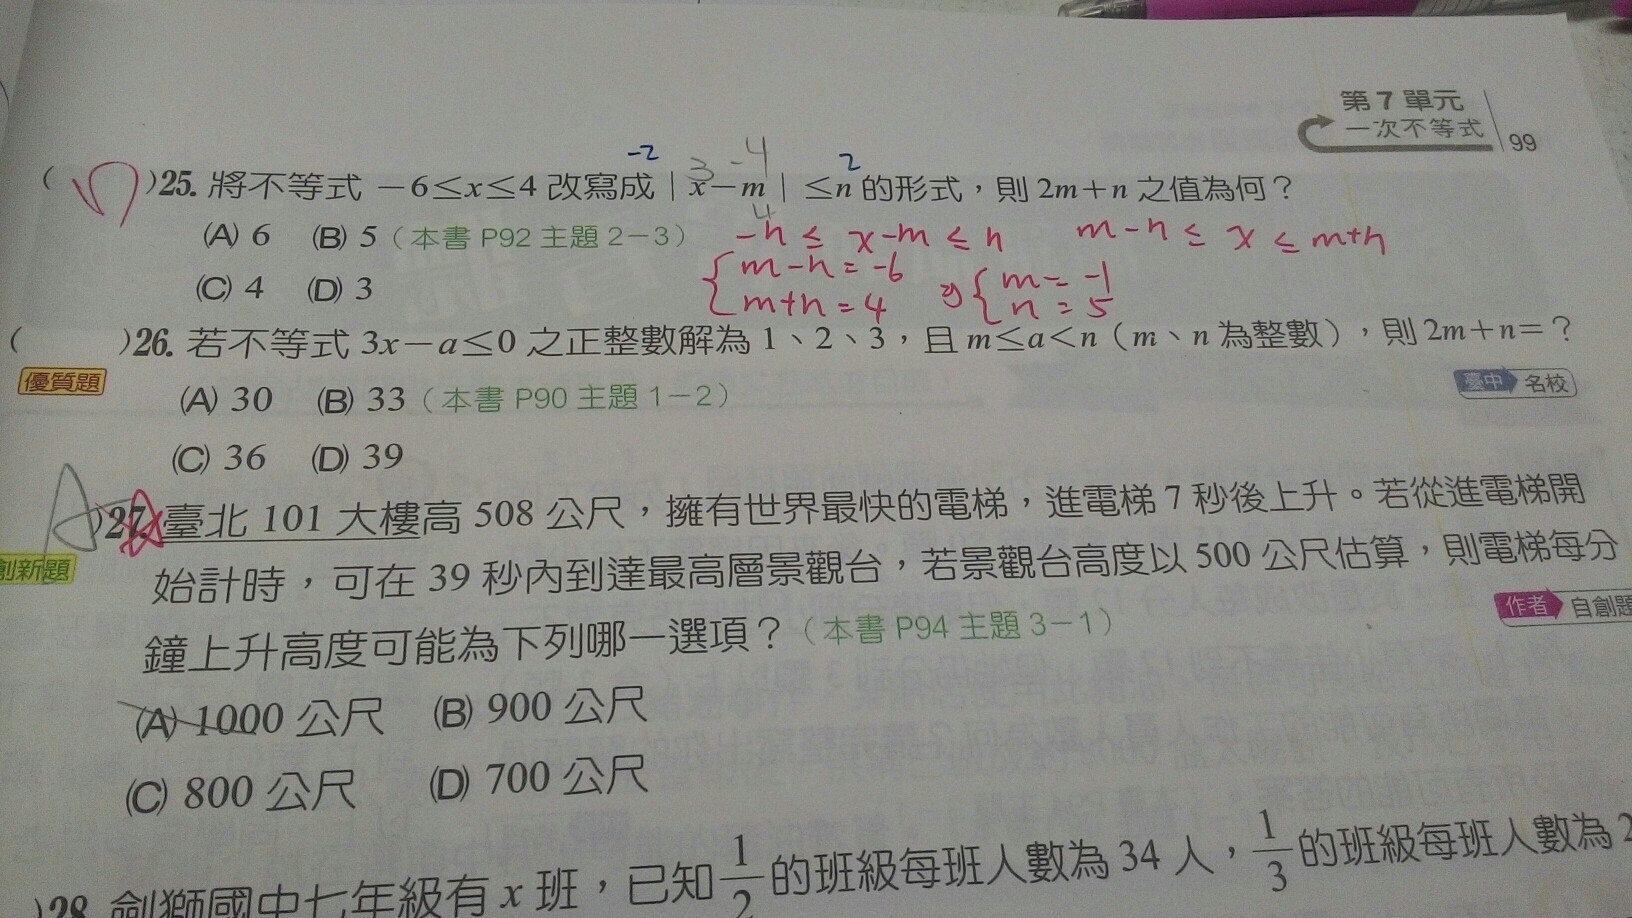 第7單元
一次不等式
99
-2 3 -4 2
( D )25. 將不等式 －6≤x≤4 改寫成 | x－m | ≤n 的形式，則 2m＋n 之值為何？
4
(A) 6 (B) 5（本書 P92 主題 2－3）
-n ≤ x-m ≤ n m-n ≤ x ≤ m+n
(C) 4 (D) 3
{ m-n = -6 { m = -1
m+n = 4 n = 5
( )26. 若不等式 3x－a≤0 之正整數解為 1、2、3，且 m≤a＜n（m、n 為整數），則 2m＋n＝？
優質題
臺中 名校
(A) 30 (B) 33（本書 P90 主題 1－2）
(C) 36 (D) 39
A )27. 臺北 101 大樓高 508 公尺，擁有世界最快的電梯，進電梯 7 秒後上升。若從進電梯開
創新題
始計時，可在 39 秒內到達最高層景觀台，若景觀台高度以 500 公尺估算，則電梯每分
作者 自創題
鐘上升高度可能為下列哪一選項？（本書 P94 主題 3－1）
(A) 1000 公尺 (B) 900 公尺
(C) 800 公尺 (D) 700 公尺
)28. 劍獅國中七年級有 x 班，已知 1/2 的班級每班人數為 34 人，1/3 的班級每班人數為 2